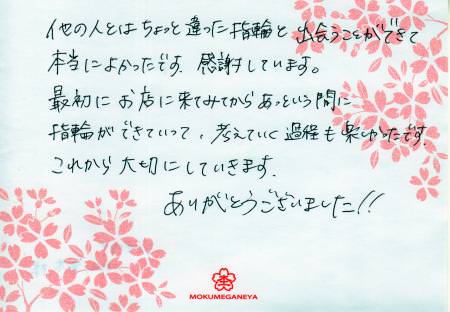 他の人とはちょっと違った指輪と出会うことができて
本当によかったです。感謝しています。
最初にお店に来てみてからあっという間に
指輪ができていって、考えていく過程も楽しかったです。
これから大切にしていきます。
ありがとうございました!!
MOKUMEGANEYA